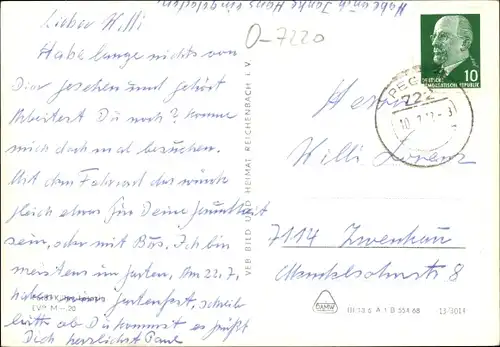 Habe auch Janke Hans eingeladen
Lieber Willi
Habe lange nichts von
Dir gesehen und gehört
Arbeitest Du noch? Komme
mich doch mal besuchen.
Mit dem Fahrrad das würde
gleich etwas für Deine Gesundheit
sein, oder mit Bus. Ich bin
meistens im Garten. Am 22.7.
haben wir Gartenfest, schreib
bitte ob Du kommst es grüßt
Dich herzlichst Paul
EVP M -,20
VEB BILD UND HEIMAT REICHENBACH I. V.
O-7220
10
DEUTSCHE
DEMOKRATISCHE REPUBLIK
PEGAU
722
Herrn
Willi Lorenz
7114 Zwenkau
Mendelsohnstr 8
III/18/6 A 1 B 551/68